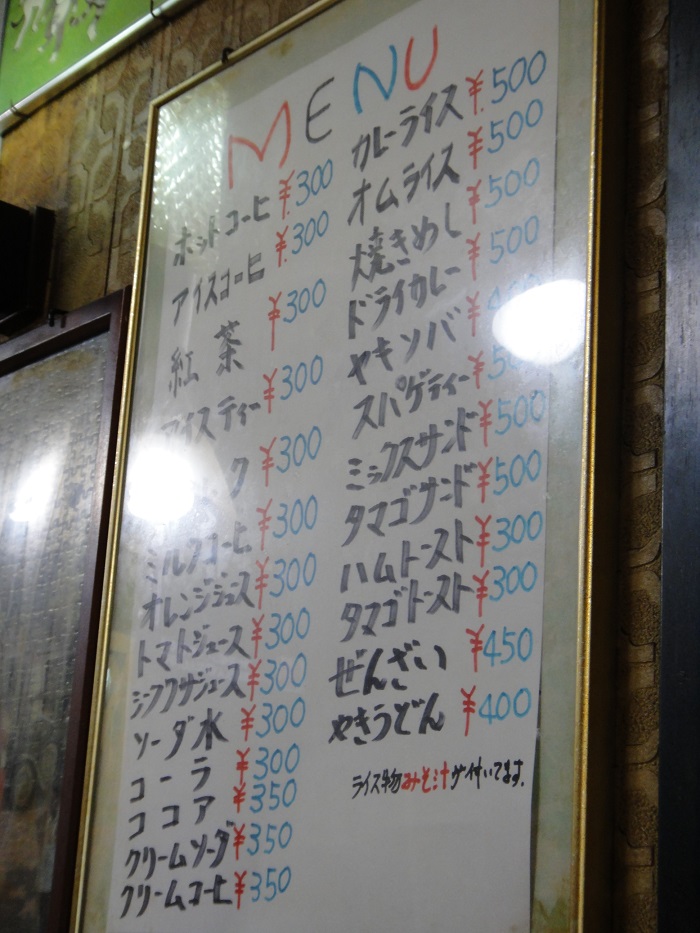 MENU
ホットコーヒ ¥300
アイスコーヒ ¥300
紅茶 ¥300
アイスティー ¥300
ク ¥300
ミルクコーヒ ¥300
オレンジジュース ¥300
トマトジュース ¥300
¥300
ソーダ水 ¥300
コーラ ¥300
ココア ¥350
クリームソーダ ¥350
クリームコーヒ ¥350
カレーライス ¥500
オムライス ¥500
焼きめし ¥500
ドライカレー ¥500
ヤキソバ
スパゲティー
ミックスサンド ¥500
タマゴサンド ¥500
ハムトースト ¥300
タマゴトースト ¥300
ぜんざい ¥450
やきうどん ¥400
ライス物みそ汁が付いてます。